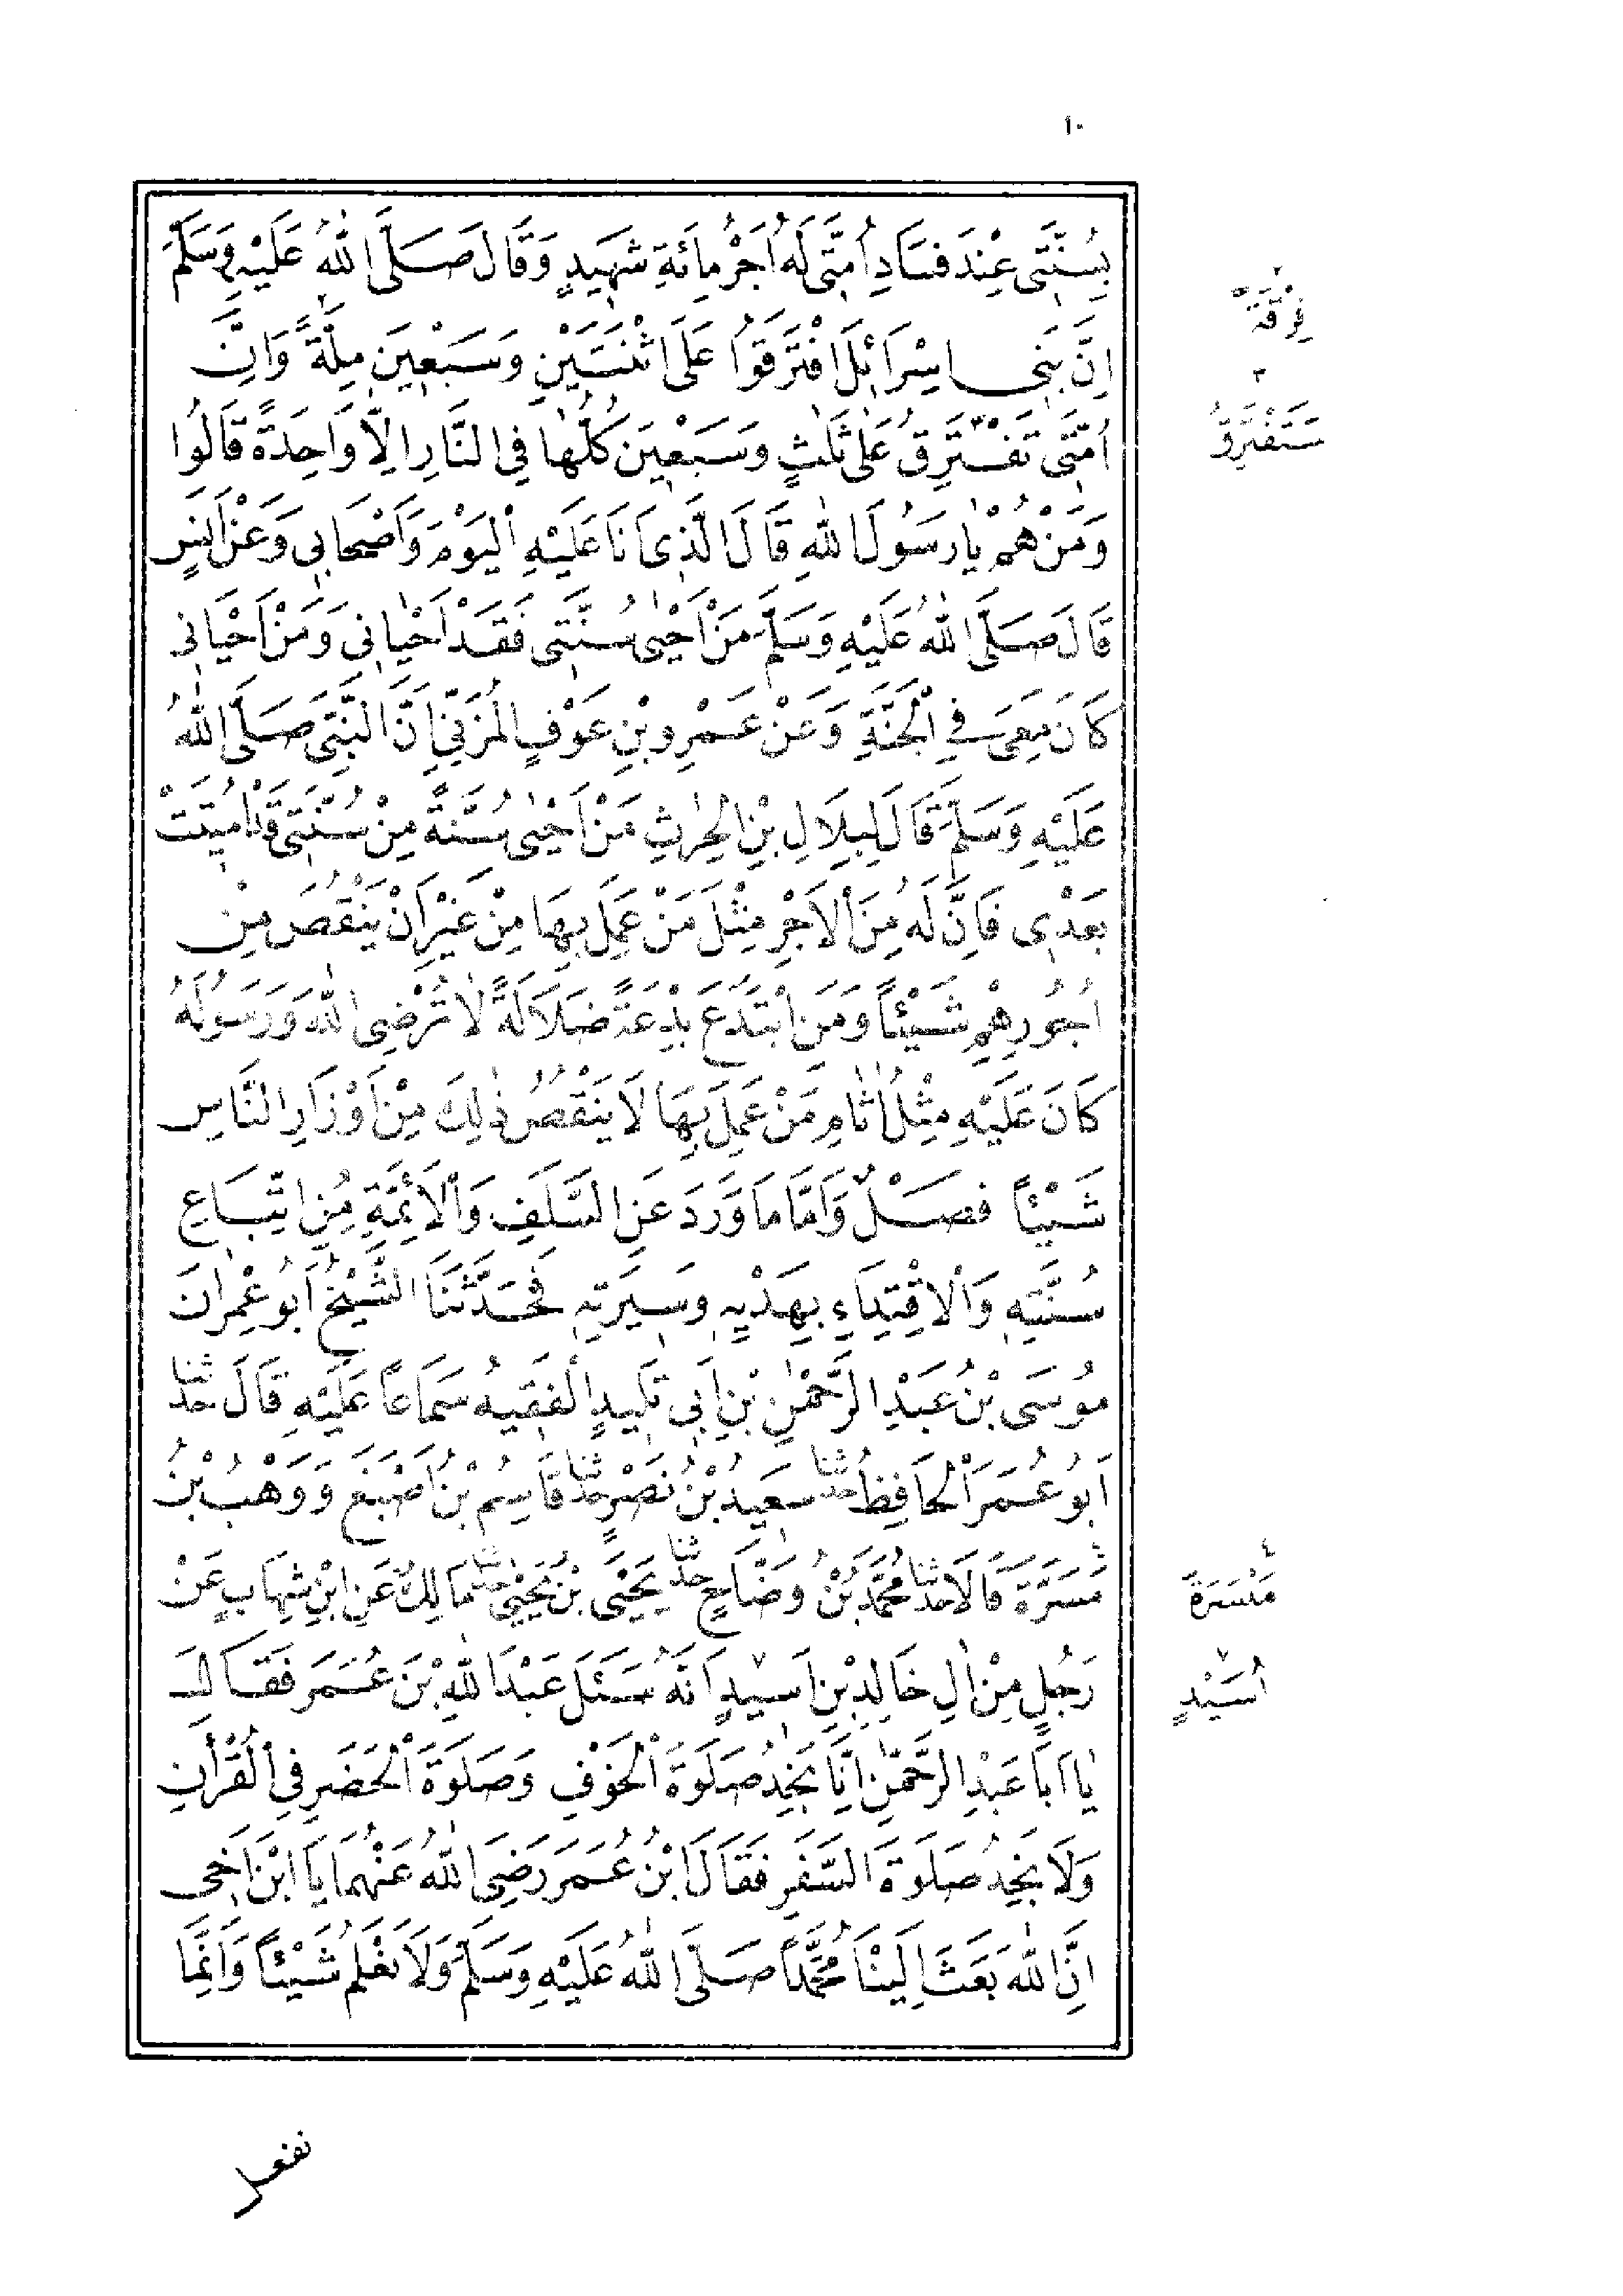 ١٠
بِسُنَّتِى عِنْدَ فَسَادِ أُمَّتِى لَهُ اَجْرُ مِائَةِ شَهِيدٍ وَقَالَ صَلَّى اللّٰهُ عَلَيْهِ وَسَلَّمَ
اِنَّ بَنِى اِسْرَائِلَ افْتَرَقُوا عَلَى اثْنَتَيْنِ وَسَبْعِينَ مِلَّةً وَاِنَّ
اُمَّتِى تَفْتَرِقُ عَلٰى ثَلٰثٍ وَسَبْعِينَ كُلُّهَا فِى النَّارِ اِلَّا وَاحِدَةً قَالُوا
وَمَنْ هُمْ يٰا رَسُولَ اللّٰهِ قَالَ الَّذِى اَنَا عَلَيْهِ الْيَوْمَ وَاَصْحَابِى وَعَنْ اَنَسٍ
قَالَ صَلَّى اللّٰهُ عَلَيْهِ وَسَلَّمَ مَنْ اَحْيٰى سُنَّتِى فَقَدْ اَحْيٰانِى وَمَنْ اَحْيَانِى
كَانَ مَعِىَ فِى الْجَنَّةِ وَعَنْ عَمْرِو بْنِ عَوْفٍ الْمُزَنِىِّ اَنَّ النَّبِىَّ صَلَّى اللّٰهُ
عَلَيْهِ وَسَلَّمَ قَالَ لِبِلَالِ بْنِ الْحٰرِثِ مَنْ اَحْيٰى سُنَّةً مِنْ سُنَّتِى قَدْ اُمِيتَتْ
بَعْدِى فَاِنَّ لَهُ مِنَ الْاَجْرِ مِثْلَ مَنْ عَمِلَ بِهَا مِنْ غَيْرِ اَنْ يَنْقُصَ مِنْ
اُجُورِهِمْ شَيْئًا وَمَنِ ابْتَدَعَ بِدْعَةً ضَلَالَةً لَا تُرْضِى اللّٰهَ وَرَسُولَهُ
كَانَ عَلَيْهِ مِثْلُ اٰثَامِ مَنْ عَمِلَ بِهَا لَا يَنْقُصُ ذٰلِكَ مِنْ اَوْزَارِ النَّاسِ
شَيْئًا فَصْلٌ وَاَمَّا مَا وَرَدَ عَنِ السَّلَفِ وَالْاَئِمَّةِ مِنِ اتِّبَاعِ
سُنَّتِهِ وَالْاِقْتِدَاءِ بِهَدْيِهِ وَسِيرَتِهِ فَحَدَّثَنَا الشَّيْخُ اَبُو عِمْرٰانَ
مُوسَى بْنُ عَبْدِ الرَّحْمٰنِ بْنِ اَبِى تَلِيدٍ الْفَقِيهُ سَمَاعًا عَلَيْهِ قَالَ حدثنا
اَبُو عُمَرَ الْحَافِظُ حدثنا سَعِيدُ بْنُ نَصْرٍ حدثنا قَاسِمُ بْنُ اَصْبَغَ وَوَهْبُ بْنُ
مَسَرَّةَ قَالَا حدثنا مُحَمَّدُ بْنُ وَضَّاحٍ حدثنا يَحْيَى بْنُ يَحْيٰى حدثنا مَالِكٌ عَنِ ابْنِ شِهَابٍ عَنْ
رَجُلٍ مِنْ اٰلِ خَالِدِ بْنِ اَسِيدٍ اَنَّهُ سَئَلَ عَبْدَ اللّٰهِ بْنَ عُمَرَ فَقَالَ
يٰا اَبَا عَبْدِ الرَّحْمٰنِ اِنَّا نَجِدُ صَلَوةَ الْخَوْفِ وَصَلَوةَ الْحَضَرِ فِى الْقُرْاٰنِ
وَلَا نَجِدُ صَلَوةَ السَّفَرِ فَقَالَ ابْنُ عُمَرَ رَضِىَ اللّٰهُ عَنْهُمَا يَا ابْنَ اَخِى
اِنَّ اللّٰهَ بَعَثَ اِلَيْنَا مُحَمَّدًا صَلَّى اللّٰهُ عَلَيْهِ وَسَلَّمَ وَلَا نَعْلَمُ شَيْئًا وَاِنَّمَا
نفعل
٢
فِرْقَةً
٣
سَتَفْتَرِقُ
٤
مَيْسَرَةَ
٧
اُسَيْدٍ